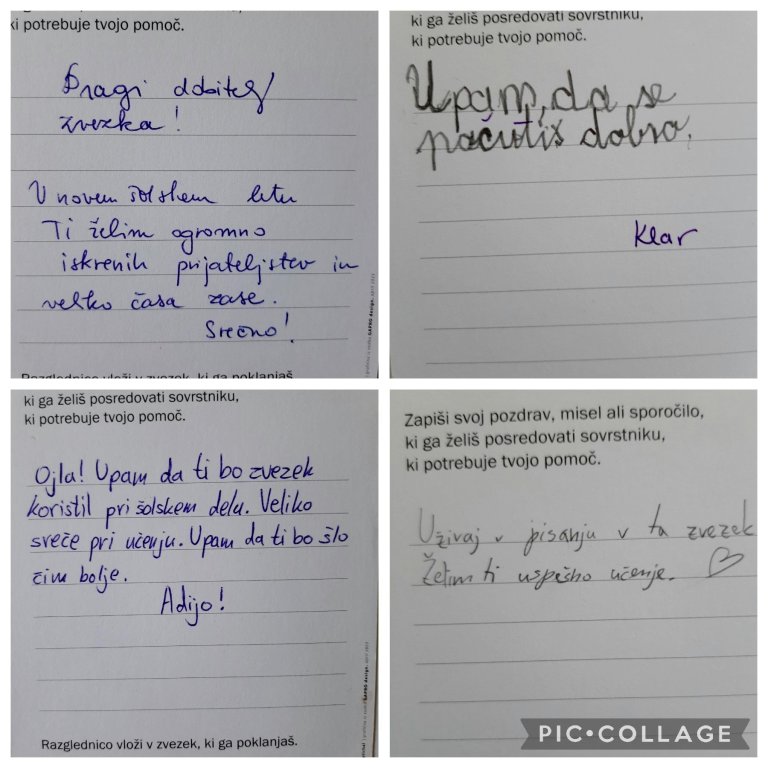 ki potrebuje tvojo pomoč.
Dragi dobitelj
zvezka!
V novem šolskem letu
Ti želim ogromno
iskrenih prijateljstev in
veliko časa zase.
Srečno!
Razglednico vloži v zvezek, ki ga poklanjaš.
ki ga želiš posredovati sovrstniku,
ki potrebuje tvojo pomoč.
Upam, da se
počutiš dobro.
Klar
ki ga želiš posredovati sovrstniku,
ki potrebuje tvojo pomoč.
Ojla! Upam da ti bo zvezek
koristil pri šolskem delu. Veliko
sreče pri učenju. Upam da ti bo šlo
čim bolje.
Adijo!
Razglednico vloži v zvezek, ki ga poklanjaš.
Zapiši svoj pozdrav, misel ali sporočilo,
ki ga želiš posredovati sovrstniku,
ki potrebuje tvojo pomoč.
Uživaj v pisanju v ta zvezek
Želim ti uspešno učenje.
PIC•COLLAGE